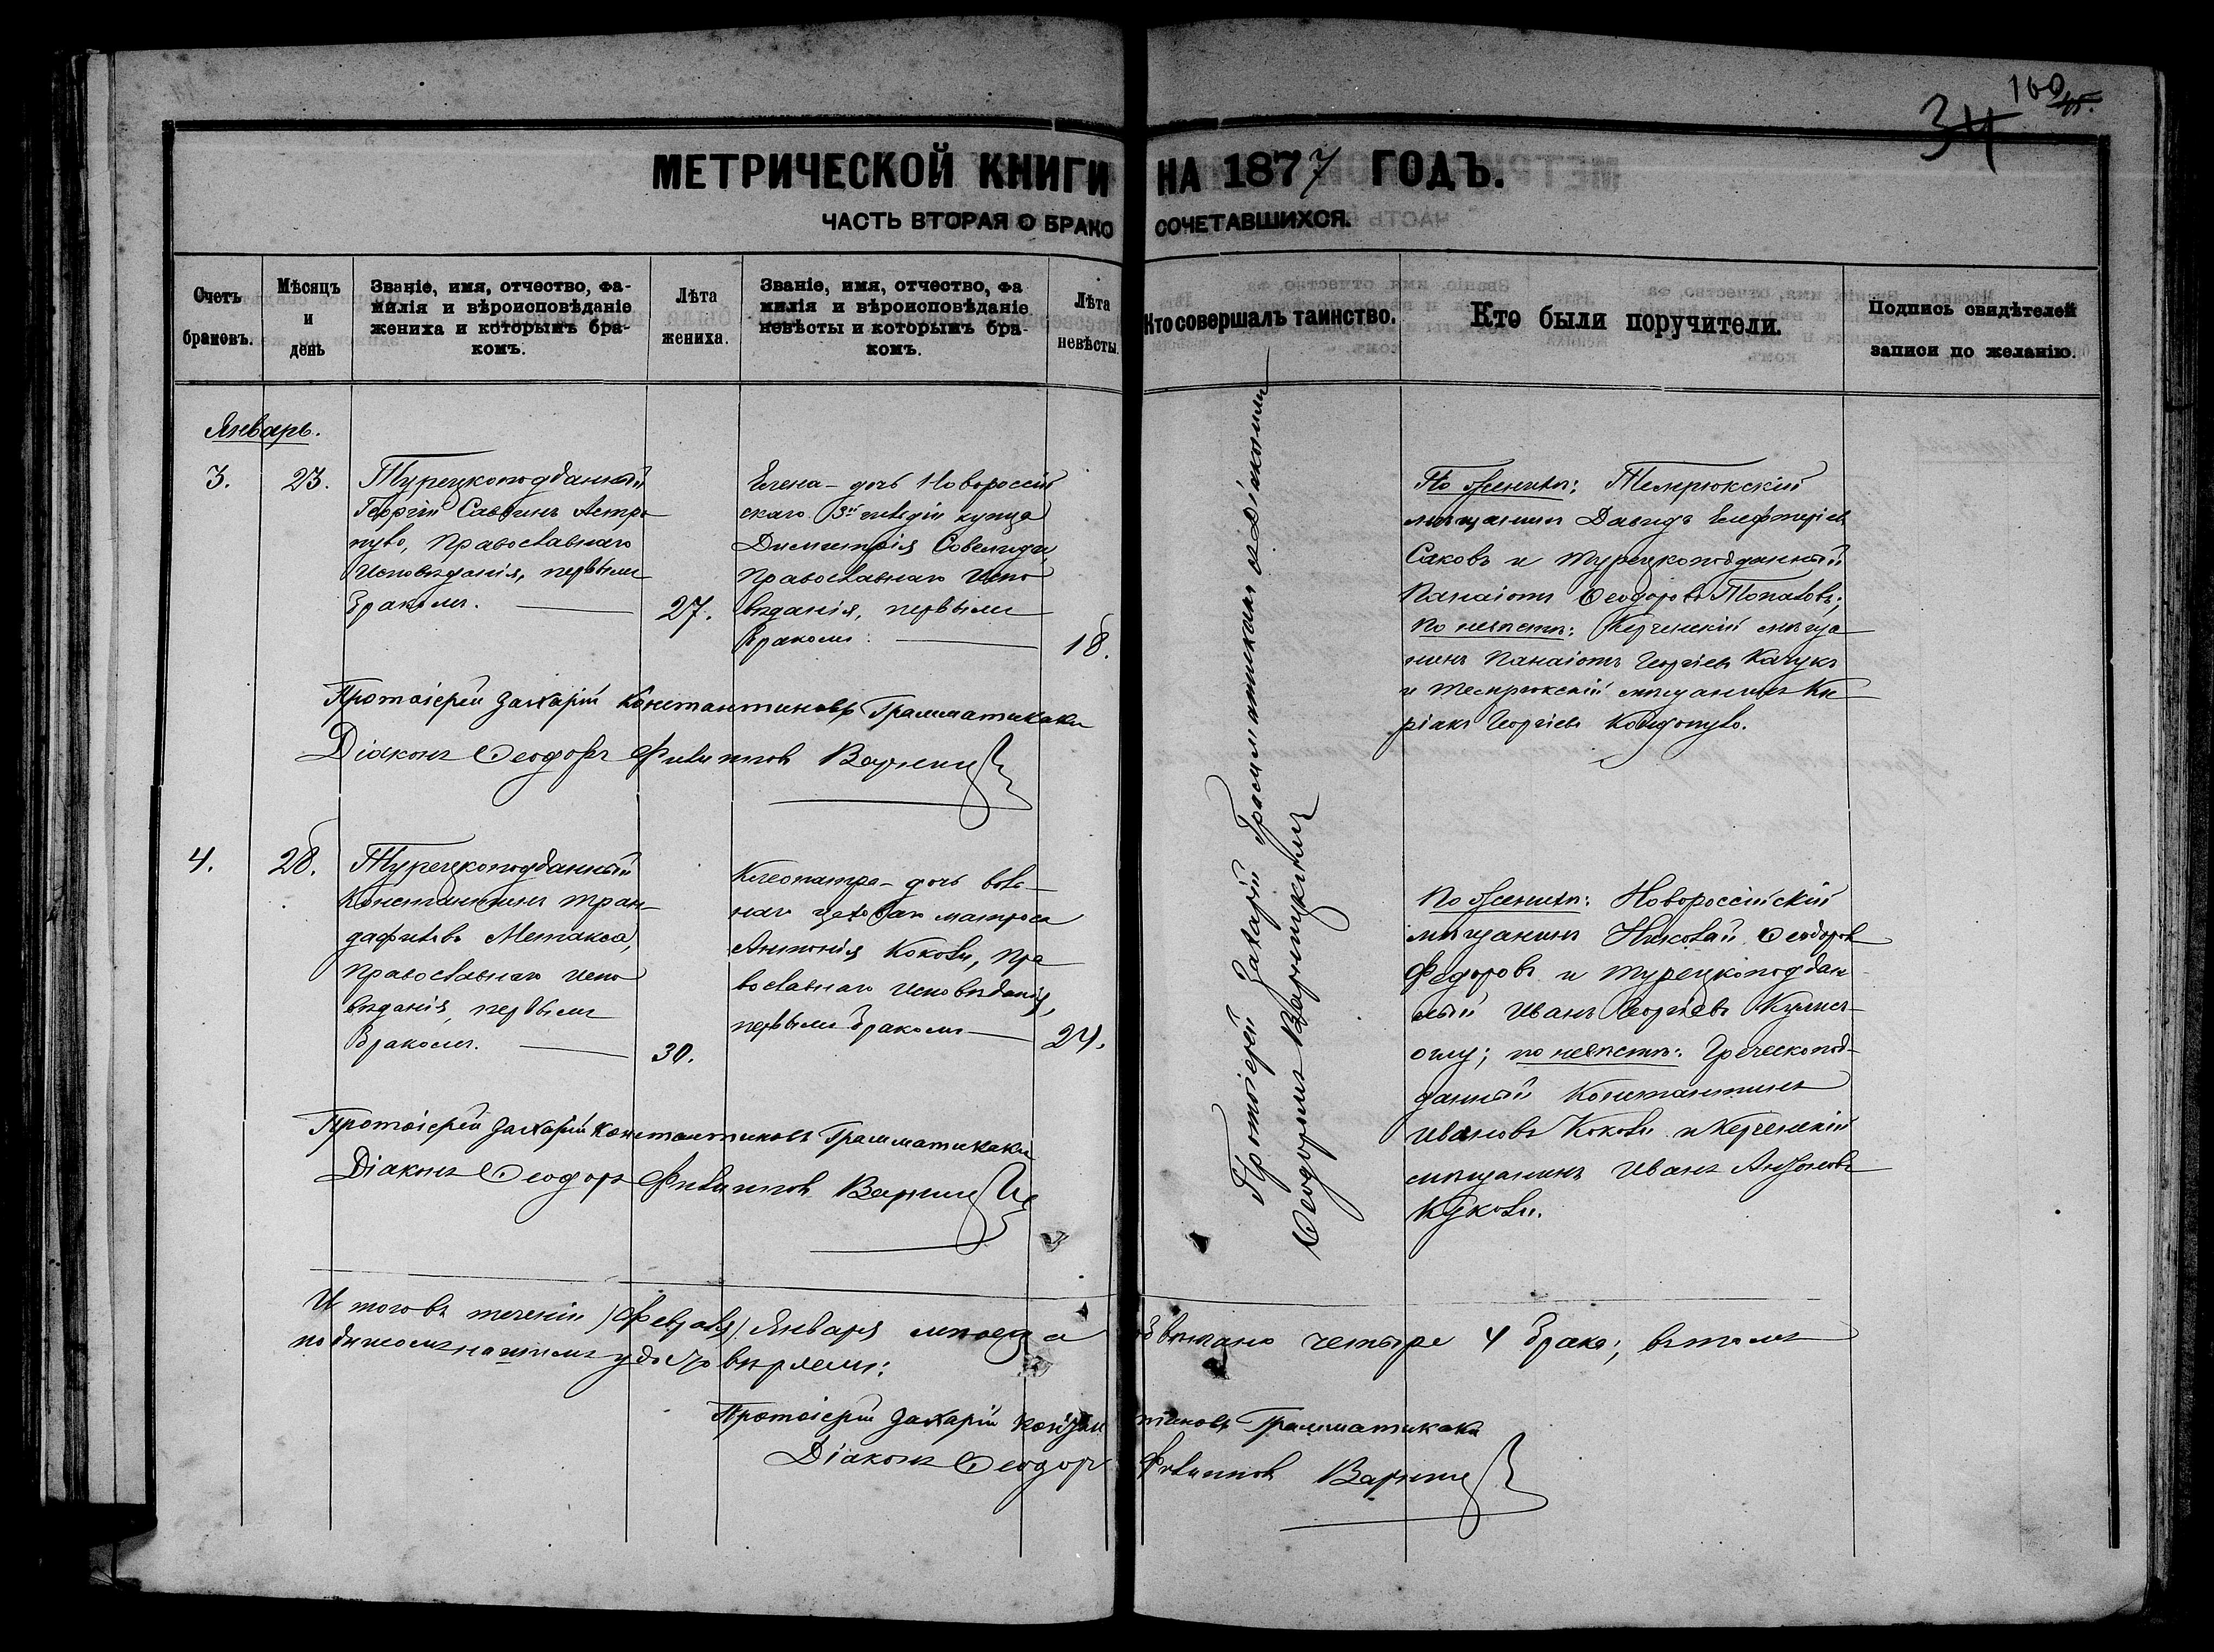 160
45.
34
МЕТРИЧЕСКОЙ КНИГИ НА 1877 ГОДЪ.
ЧАСТЬ ВТОРАЯ О БРАКОСОЧЕТАВШИХСЯ.
Счетъ
браковъ.
Мѣсяцъ
и
день
Званіе, имя, отчество, фа-
милія и вѣроисповѣданіе
жениха и которымъ бра-
комъ.
Лѣта
жениха.
Званіе, имя, отчество, фа
милія и вѣроисповѣданіе
невѣсты и которымъ бра-
комъ.
Лѣта
невѣсты.
Кто совершалъ таинство.
Кто были поручители.
Подпись свидѣтелей
записи по желанію.
Январь.
3.
23.
Турецкоподданный
Георгій Саввинъ Астро
пуло, Православнаго
Исповѣданія, первымъ
бракомъ.
27.
Елена - дочь Новороссій
скаго 3й гильдіи купца
Димитрія Совелиди,
Православнаго Испо
вѣданія, первымъ
бракомъ.
18.
Протоіерей Захарій Грамматикаки съ Діакономъ
Ѳеодоромъ Варницкимъ
По женихѣ: Темрюкскій
мѣщанинъ Давидъ Елефтеріевъ
Саковъ и турецкоподданный
Панаіотъ Ѳеодоровъ Топаловъ;
по невѣстѣ: Керченскій мѣща
нинъ Панаіотъ Георгіевъ Качукъ
и Темрюкскій мѣщанинъ Ки
ріакъ Георгіевъ Кондопуло.
Протоіерей Захарій Константиновъ Грамматикаки
Діаконъ Ѳеодоръ Филипповъ
4.
28.
Турецкоподданный
Константинъ Тран-
дафиловъ Метакса,
Православнаго испо
вѣданія, первымъ
бракомъ.
30.
Клеопатра - дочь воль-
наго цеховаго матроса
Антонія Коколи, Пра
вославнаго исповѣданія,
первымъ бракомъ
24.
По женихѣ: Новороссійскій
мѣщанинъ Николай Ѳеодоровъ
Федоровъ и турецкоподдан
ный Иванъ Георгіевъ
оглу; по невѣстѣ: Греческопод-
данный Константинъ
Ивановъ Коколи и Керченскій
мѣщанинъ Иванъ Антоновъ
Куколи.
Протоіерей Захарій Константиновъ Грамматикаки
Діаконъ Ѳеодоръ Филипповъ
Итого въ теченіи /Февраля/ Января мѣсяца четыре 4 брака; въ томъ
удостовѣряемъ:
Протоіерей Захарій Константиновъ Грамматикаки
Діаконъ Ѳеодоръ Филипповъ